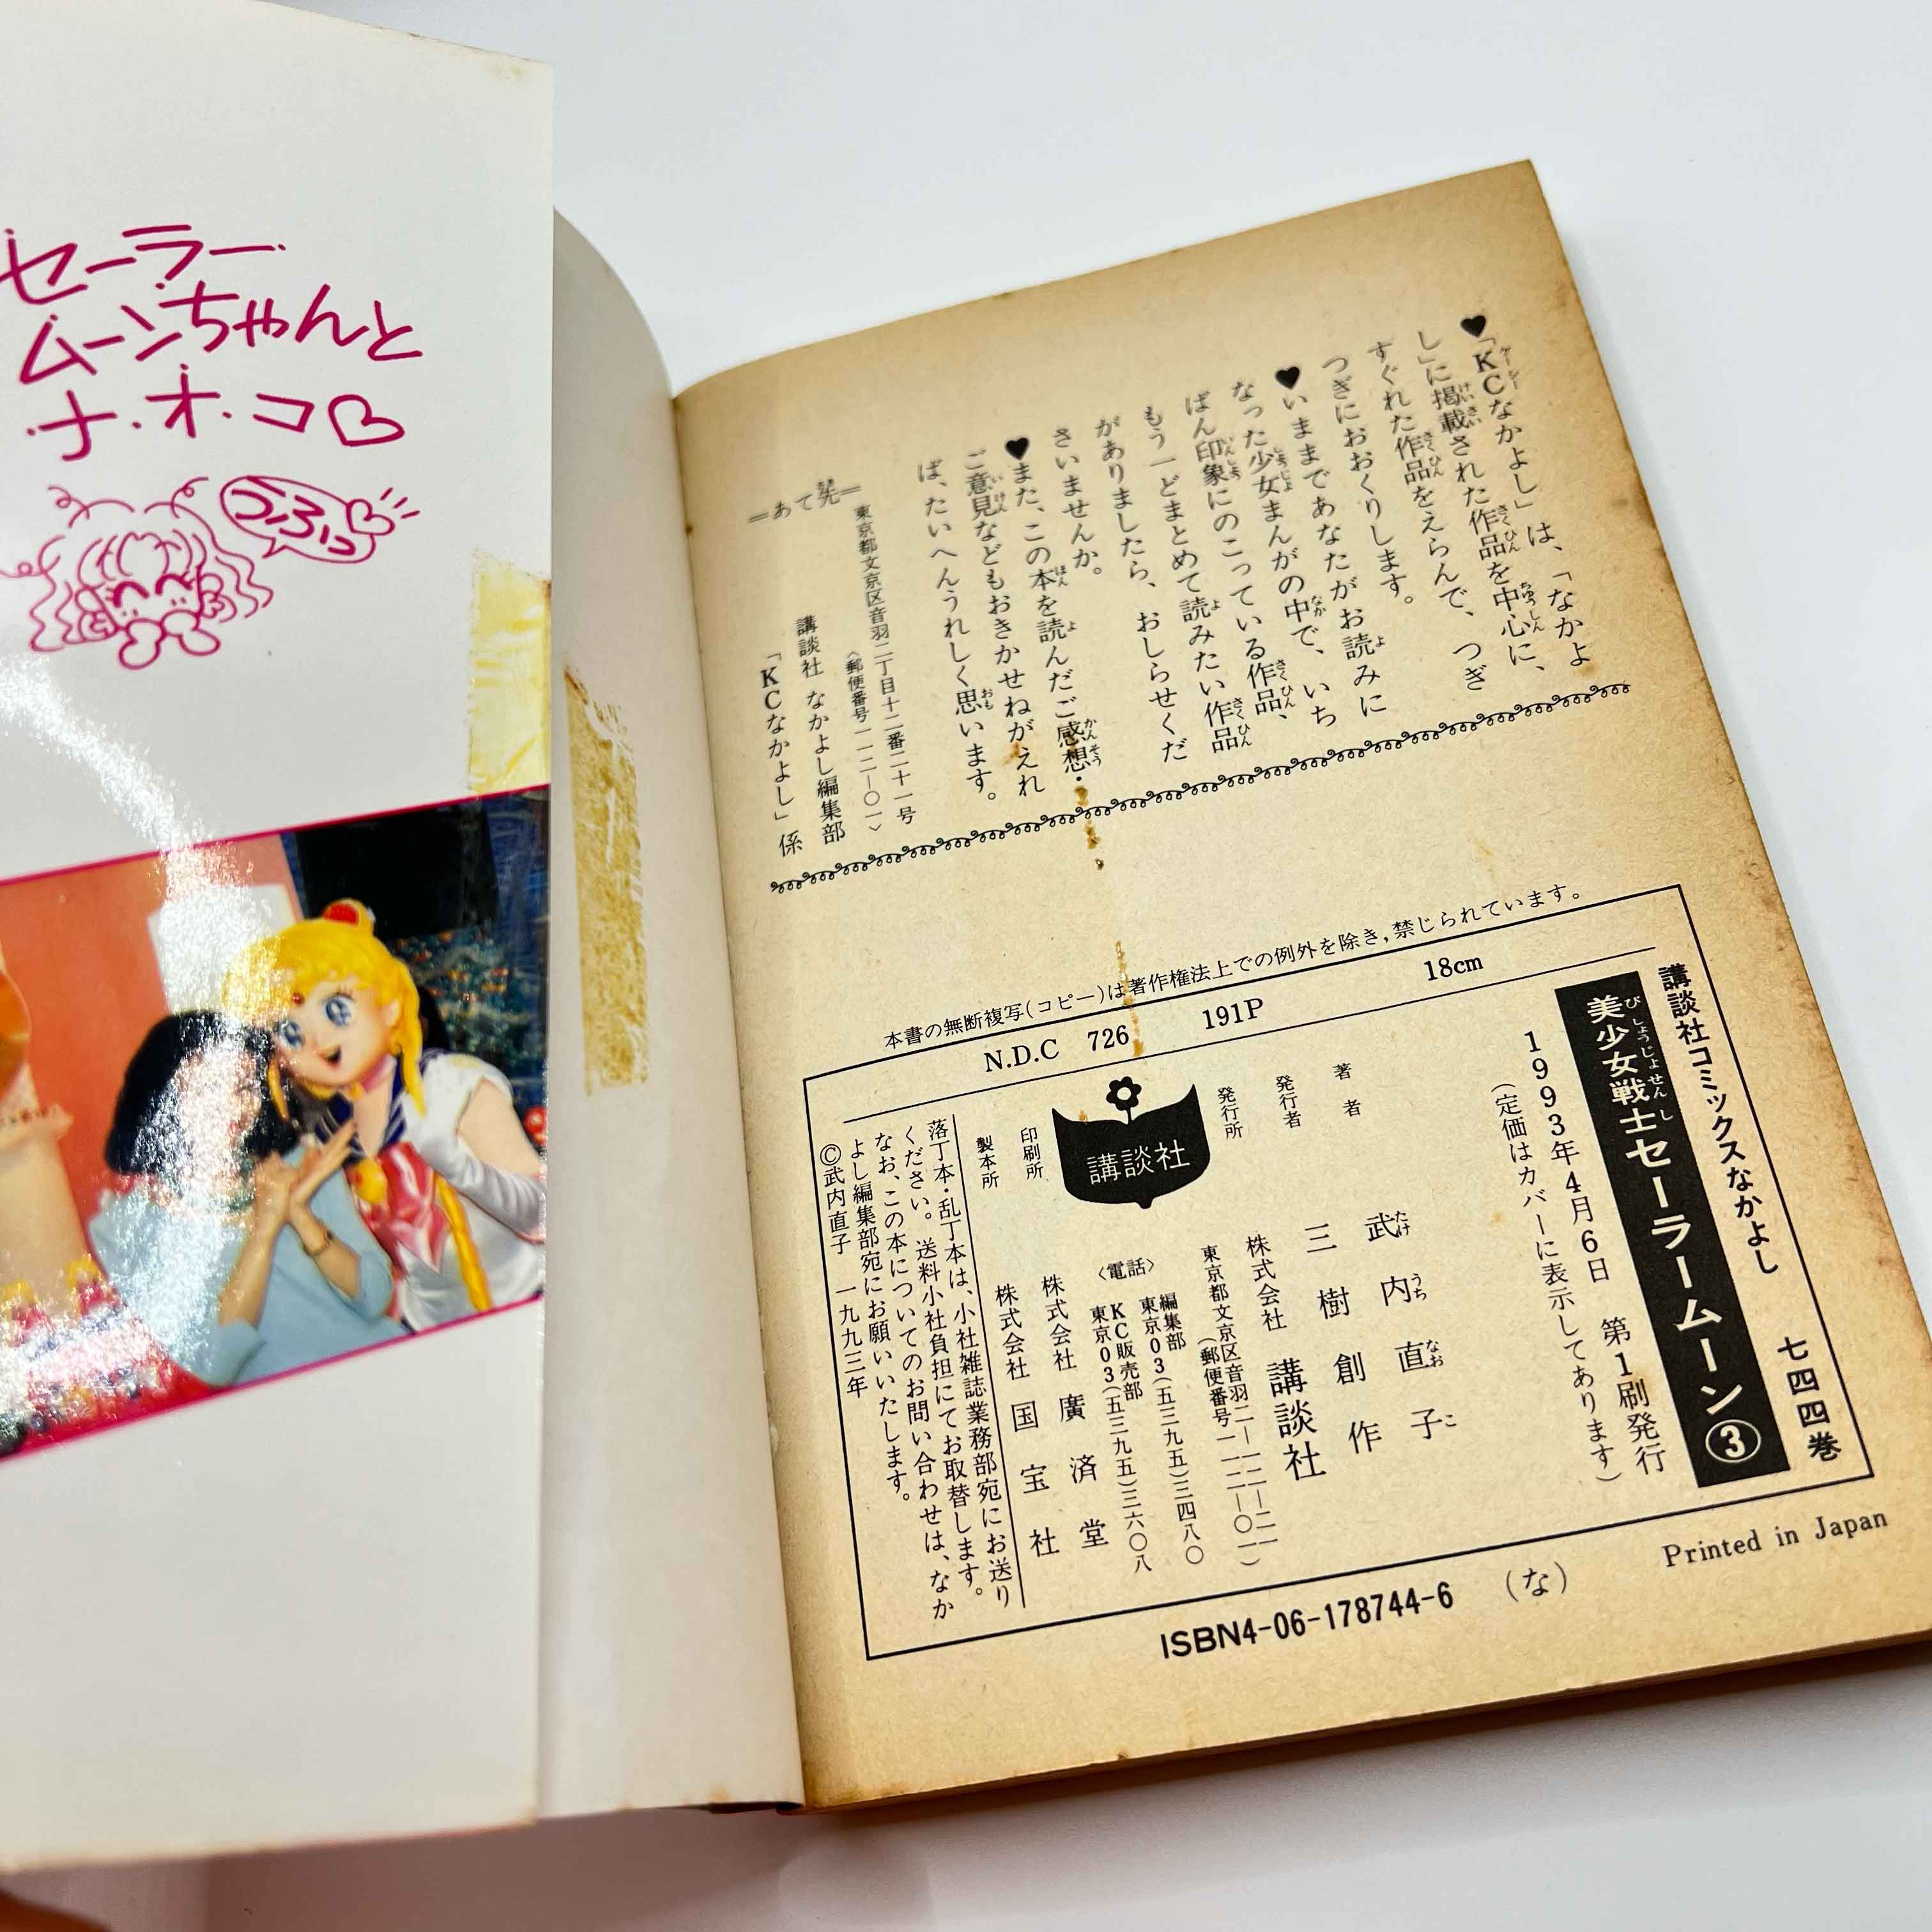 セーラー
ムーンちゃんと
ナ・オ・コ♡
うふっ♡
♥「KCなかよし」は、「なかよ
し」に掲載された作品を中心に、
すぐれた作品をえらんで、つぎ
つぎにおおくりします。
♥いままであなたがお読みに
なった少女まんがの中で、いち
ばん印象にのこっている作品、
もう一どまとめて読みたい作品
がありましたら、おしらせくだ
さいませんか。
♥また、この本を読んだご感想・
ご意見などもおきかせねがえれ
ば、たいへんうれしく思います。
＝あて先＝
東京都文京区音羽二丁目十二番二十一号
〈郵便番号一一二―〇一〉
講談社 なかよし編集部
「KCなかよし」係
本書の無断複写(コピー)は著作権法上での例外を除き,禁じられています。
N.D.C 726 191P 18cm
講談社コミックスなかよし 七四四巻
美少女戦士セーラームーン③
1993年4月6日 第1刷発行
(定価はカバーに表示してあります)
著者 武内直子
発行者 三樹創作
発行所 株式会社 講談社
東京都文京区音羽二―一二―二一
(郵便番号一一二―〇一)
〈電話〉 編集部 東京03(五三九五)三四八〇
KC販売部 東京03(五三九五)三六〇八
講談社
印刷所 株式会社 廣済堂
製本所 株式会社 国宝社
落丁本・乱丁本は、小社雑誌業務部宛にお送り
ください。送料小社負担にてお取替します。
なお、この本についてのお問い合わせは、なか
よし編集部宛にお願いいたします。
©武内直子 一九九三年
ISBN4-06-178744-6 (な)
Printed in Japan